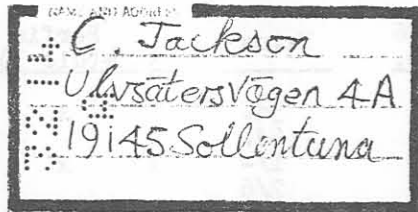 NAME AND ADDRESS
C. Jackson
Ulvsätersvägen 4A
19145 Sollentuna